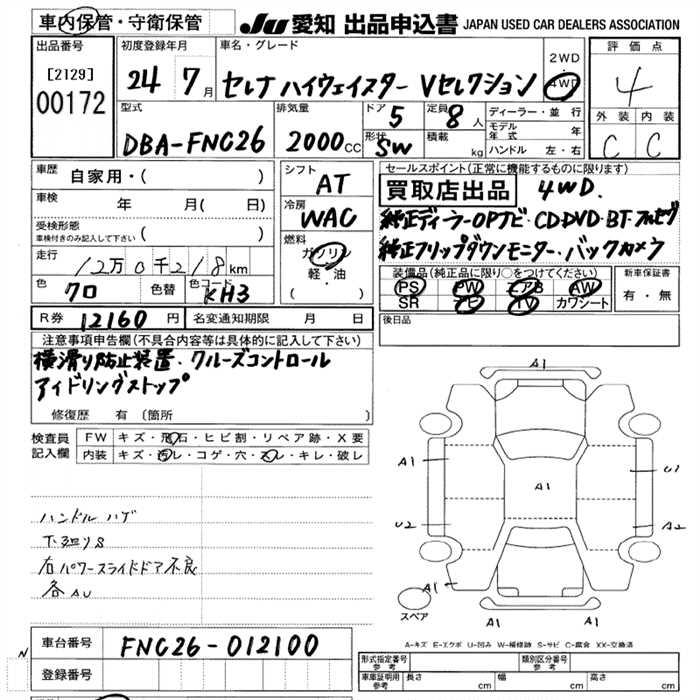 車内保管・守衛保管
JU 愛知 出品申込書 JAPAN USED CAR DEALERS ASSOCIATION
出品番号
[2129]
00172
初度登録年月
24 7月
車名・グレード
セレナ ハイウェイスター Vセレクション
2WD
4WD
評価点
4
外装 内装
C C
型式
DBA-FNC26
排気量
2000 CC
ドア
5
形状
SW
定員
8人
積載
kg
ディーラー・並行
モデル年式 年
ハンドル 左・右
車歴
自家用・( )
車検
年 月( 日)
受検形態
車検付きのみ記入して下さい ( )
走行
12万0千218km
色
クロ
色替
色コード
KH3
シフト
AT
冷房
WAC
燃料
ガソリン
軽・油
( )
セールスポイント(正常に機能するものに限ります)
買取店出品 4WD.
純正ディーラーOPナビ・CD・DVD・BT・フルセグ
純正フリップダウンモニター・バックカメラ
装備品(純正品に限り○をつけてください)
PS PW エアB AW
SR ナビ TV カワシート
新車保証書
有・無
R券 12160円
名変通知期限 月 日
後日品
注意事項申告欄(不具合内容等は具体的に記入して下さい)
横滑り防止装置・クルーズコントロール
アイドリングストップ
修復歴 有(箇所 )
検査員記入欄
FW キズ・飛石・ヒビ割・リペア跡・X要
内装 キズ・汚レ・コゲ・穴・スレ・キレ・破レ
ハンドルハゲ
下廻りS
右パワースライドドア不良
各AU
A1
A1
U1
A1
U2
A2
A1
A1
A1
A1
スペア
A-キズ E-エクボ U-凹み W-補修跡 S-サビ C-腐食 XX-交換済
N
車台番号 FNC26-012100
登録番号
形式指定番号 参考
類別区分番号 参考
車庫証明用 参考
長さ cm
幅 cm
高さ cm